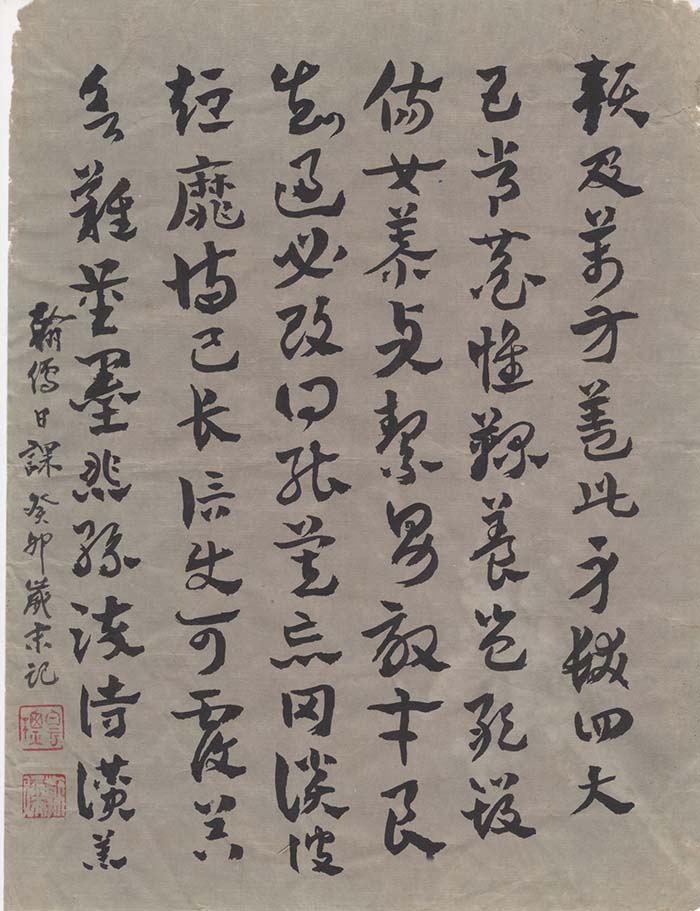 賴及萬方蓋此身髮四大
五常恭惟鞠養豈敢毀
傷女慕貞絜男效才良
知過必改得能莫忘罔談彼
短靡恃己長信使可覆器
欲難量墨悲絲染詩讚羔
翰儒日課癸卯歲末記